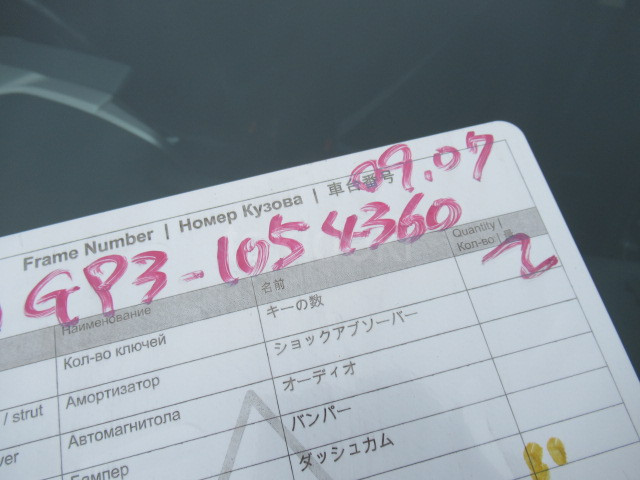 09.07
Frame Number | Номер Кузова | 車台番号
GP3-1054360
Наименование 名前 Quantity | Кол-во |
Кол-во ключей キーの数 2
/ strut Амортизатор ショックアブソーバー
Автомагнитола オーディオ
Бампер バンパー
ダッシュカム